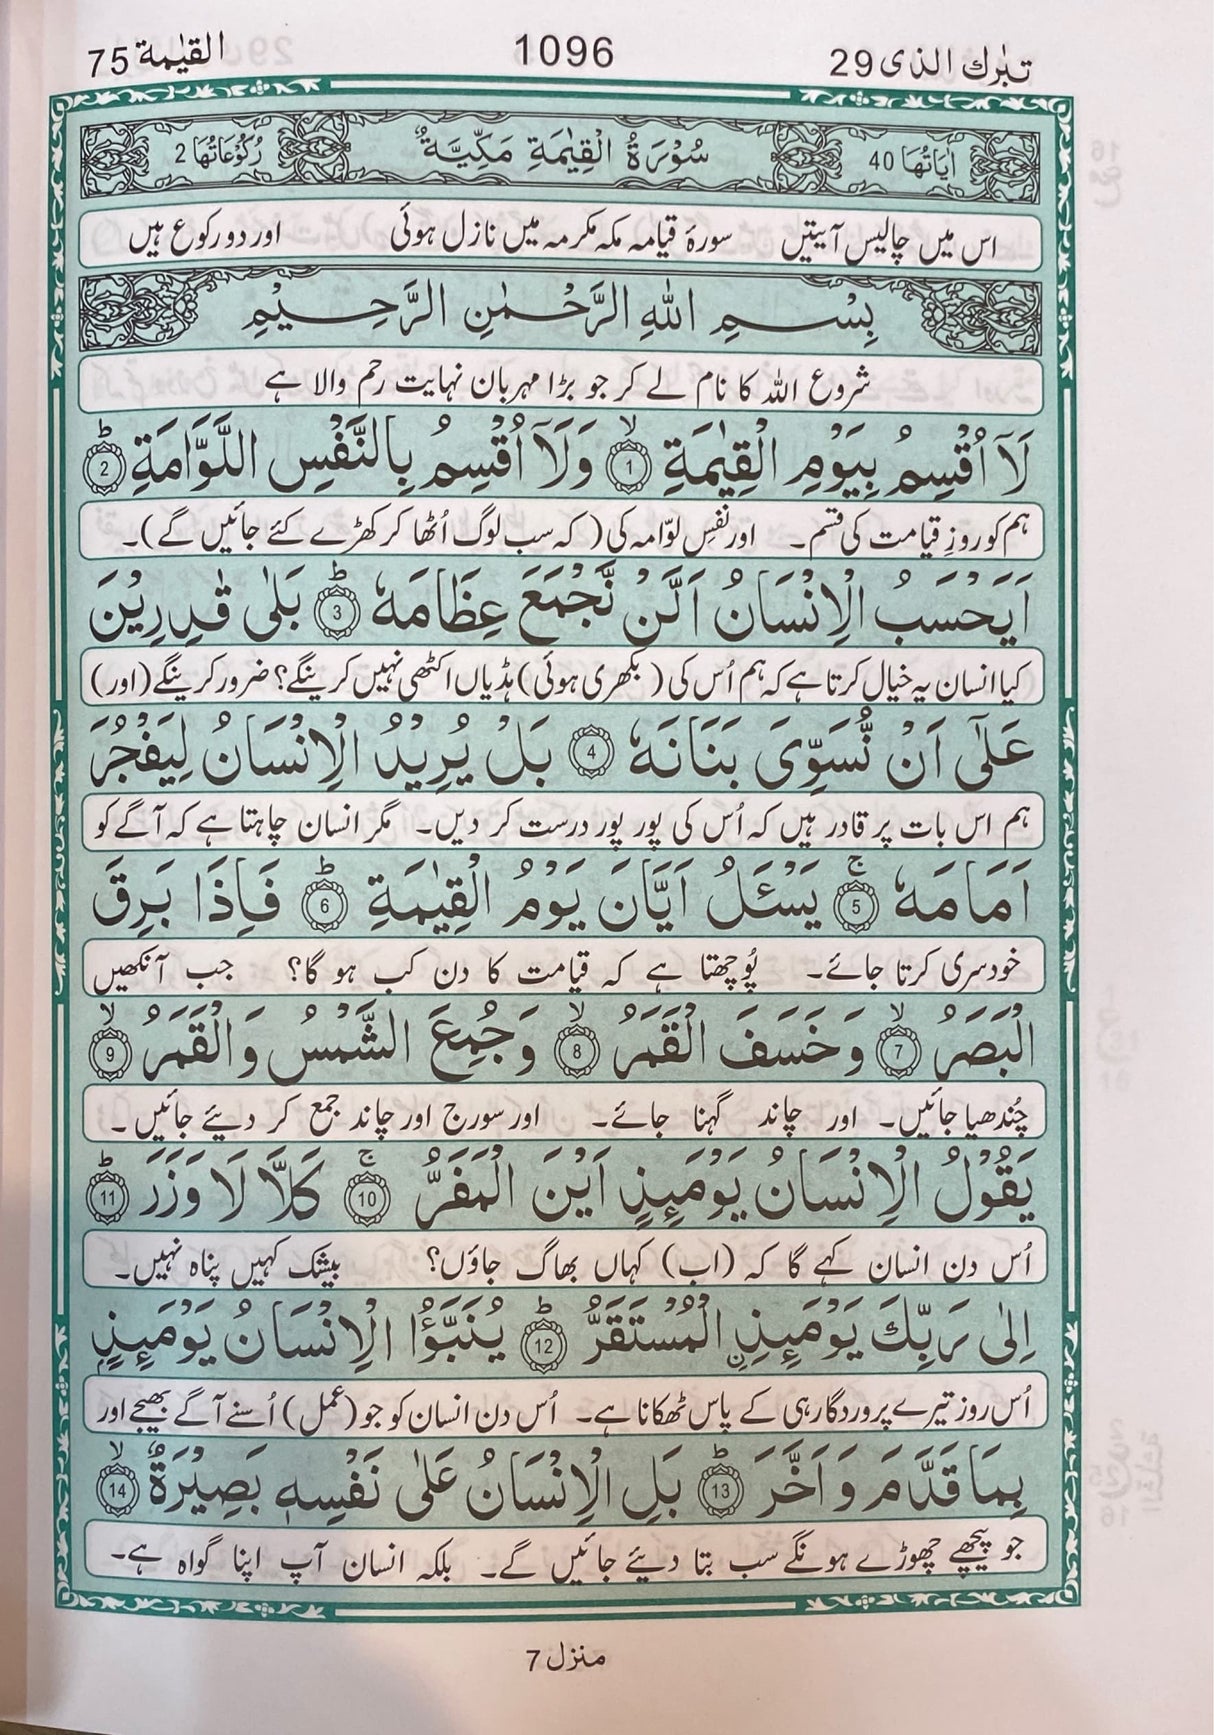 تبٰرك الذى 29 1096 القيٰمة 75
اٰيَاتُهَا 40 سُوْرَةُ الْقِيٰمَةِ مَكِّيَّةٌ رُكُوْعَاتُهَا 2
اس میں چالیس آیتیں سورۂ قیامہ مکہ مکرمہ میں نازل ہوئی اور دو رکوع ہیں
بِسْمِ اللّٰهِ الرَّحْمٰنِ الرَّحِيْمِ
شروع اللہ کا نام لے کر جو بڑا مہربان نہایت رحم والا ہے
لَآ اُقْسِمُ بِيَوْمِ الْقِيٰمَةِ ۙ﴿1﴾ وَلَآ اُقْسِمُ بِالنَّفْسِ اللَّوَّامَةِ ؕ﴿2﴾
ہم کو روزِ قیامت کی قسم۔ اور نفسِ لوّامہ کی (کہ سب لوگ اُٹھا کر کھڑے کئے جائیں گے)۔
اَيَحْسَبُ الْاِنْسَانُ اَلَّنْ نَّجْمَعَ عِظَامَهٗ ؕ﴿3﴾ بَلٰى قٰدِرِيْنَ
کیا انسان یہ خیال کرتا ہے کہ ہم اُس کی (بکھری ہوئی) ہڈیاں اکٹھی نہیں کرینگے؟ ضرور کرینگے (اور)
عَلٰٓى اَنْ نُّسَوِّىَ بَنَانَهٗ ﴿4﴾ بَلْ يُرِيْدُ الْاِنْسَانُ لِيَفْجُرَ
ہم اس بات پر قادر ہیں کہ اُس کی پور پور درست کر دیں۔ مگر انسان چاہتا ہے کہ آگے کو
اَمَامَهٗ ۚ﴿5﴾ يَسْئَلُ اَيَّانَ يَوْمُ الْقِيٰمَةِ ؕ﴿6﴾ فَاِذَا بَرِقَ
خودسری کرتا جائے۔ پُوچھتا ہے کہ قیامت کا دن کب ہو گا؟ جب آنکھیں
الْبَصَرُ ۙ﴿7﴾ وَخَسَفَ الْقَمَرُ ۙ﴿8﴾ وَجُمِعَ الشَّمْسُ وَالْقَمَرُ ۙ﴿9﴾
چُندھیا جائیں۔ اور چاند گہنا جائے۔ اور سورج اور چاند جمع کر دیئے جائیں۔
يَقُوْلُ الْاِنْسَانُ يَوْمَئِذٍ اَيْنَ الْمَفَرُّ ۚ﴿10﴾ كَلَّا لَا وَزَرَ ؕ﴿11﴾
اُس دن انسان کہے گا کہ (اب) کہاں بھاگ جاؤں؟ بیشک کہیں پناہ نہیں۔
اِلٰى رَبِّكَ يَوْمَئِذِ ۨالْمُسْتَقَرُّ ؕ﴿12﴾ يُنَبَّؤُا الْاِنْسَانُ يَوْمَئِذٍۭ
اُس روز تیرے پروردگار ہی کے پاس ٹھکانا ہے۔ اُس دن انسان کو جو (عمل) اُسنے آگے بھیجے اور
بِمَا قَدَّمَ وَاَخَّرَ ؕ﴿13﴾ بَلِ الْاِنْسَانُ عَلٰى نَفْسِهٖ بَصِيْرَةٌ ۙ﴿14﴾
جو پیچھے چھوڑے ہونگے سب بتا دیئے جائیں گے۔ بلکہ انسان آپ اپنا گواہ ہے۔
منزل 7